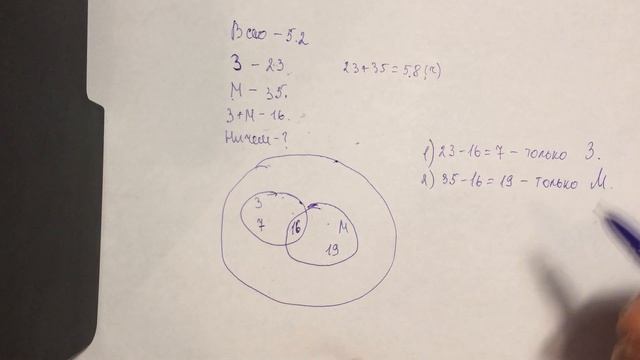 Всего – 52
З – 23.
23+35=58(ч)
М – 35.
З+М – 16.
Ничем – ?
1) 23-16=7 – только З.
2) 35-16=19 – только М.
З
7
16
М
19